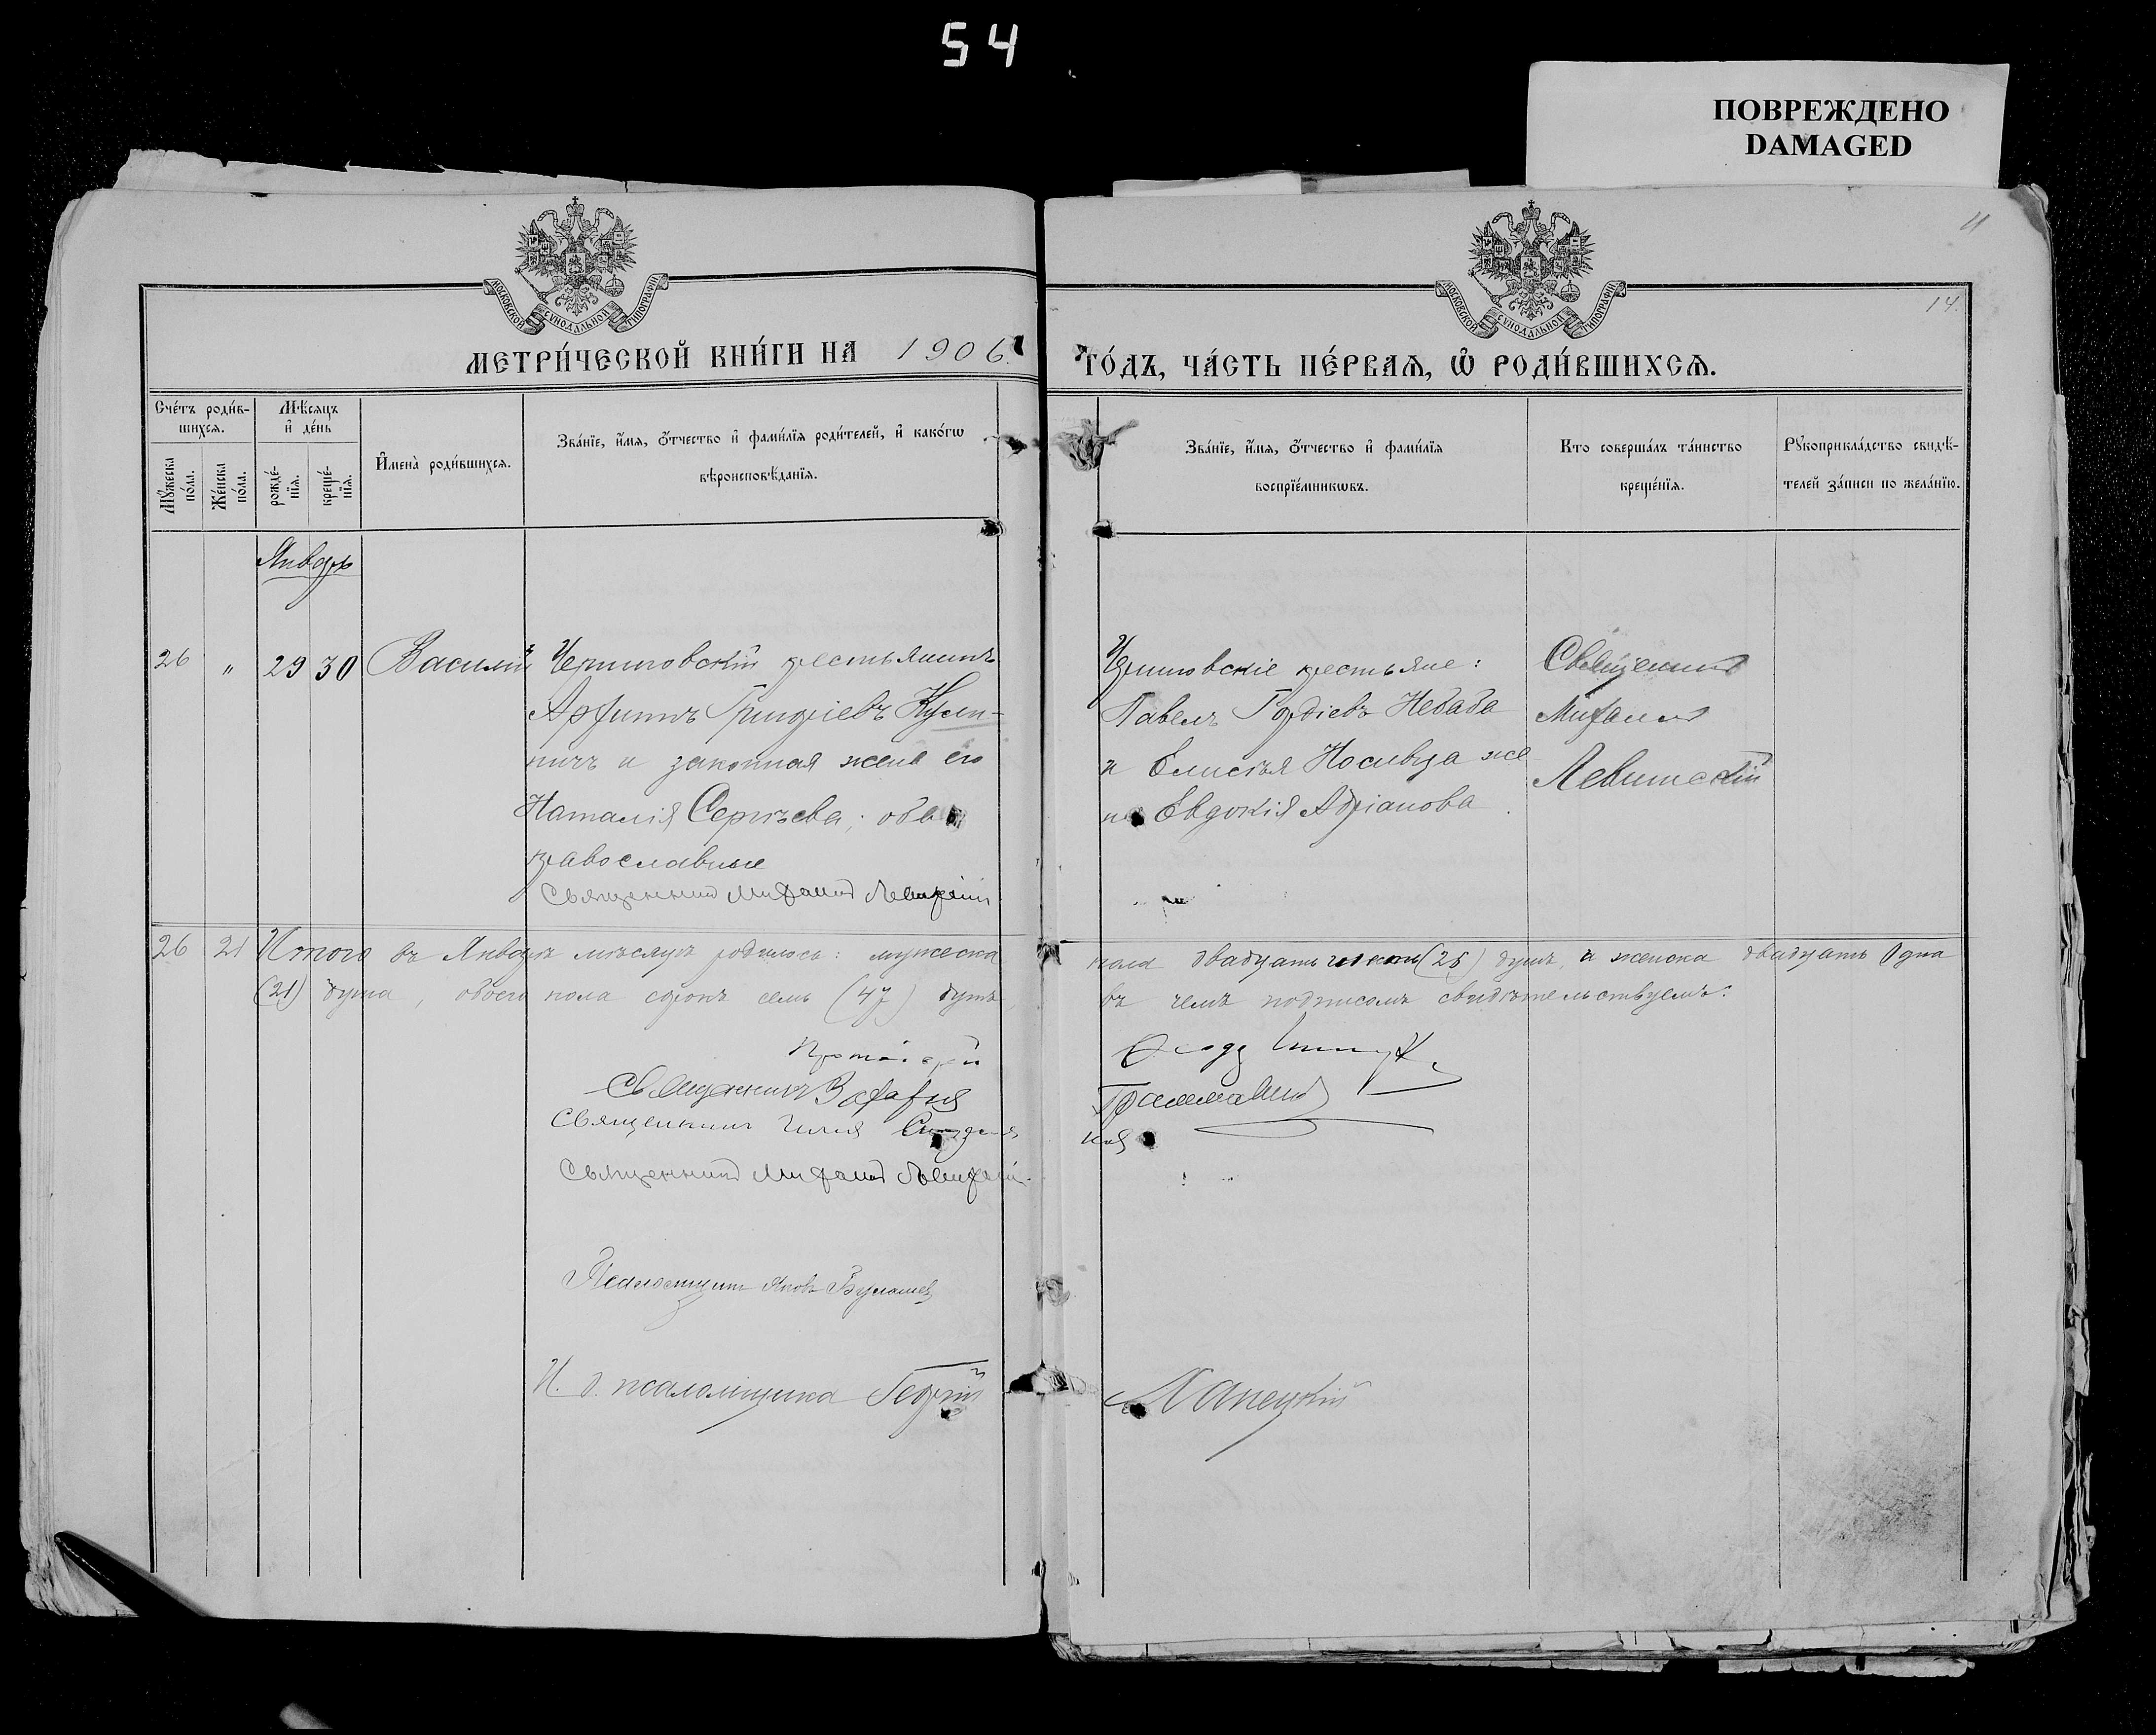 54
ПОВРЕЖДЕНО
DAMAGED
11
14.
МОСКОВСКОЙ СѴНОДАЛЬНОЙ ТИПОГРАФІИ
МОСКОВСКОЙ СѴНОДАЛЬНОЙ ТИПОГРАФІИ
МЕТРИ́ЧЕСКОЙ КНИ́ГИ НА 1906.
ГО́ДЪ, ЧА́СТЬ ПЕ́РВАѦ, Ѽ РОДИ́ВШИХСѦ.
Сче́тъ роди́в-
шихсѧ.
Мꙋ́жеска по́ла.
Же́нска по́ла.
Мѣ́сѧцъ и҆ де́нь
рожде́-
нїѧ.
креще́-
нїѧ.
И҆мена̀ роди́вшихсѧ.
Зва́нїе, и҆́мѧ, ѻ҆́тчество и҆ фами́лїѧ роди́телей, и҆ како́гѡ
вѣроисповѣ́данїѧ.
Зва́нїе, и҆́мѧ, ѻ҆́тчество и҆ фами́лїѧ
воспрїе́мникѡвъ.
Кто соверша́лъ та́инство
креще́нїѧ.
Рꙋкоприкла́дство свидѣ́-
телей за́писи по жела́нїю.
Январь
26 " 29 30 Василій
Черниговскій крестьянинъ
Григоріевъ Кули-
ничъ и законная жена его
Наталія Сергѣева; оба
православные
Священник Михаил Левитскій
Черниговскіе крестьяне:
Павелъ Гордіевъ Небаба
и Носивца же
на Евдокія Адріанова
Священник
Михаил
Левитскій
26 21 Итого въ Январѣ мѣсяцѣ родилось: мужеска
пола двадцать шесть (26) душъ, а женска двадцать одна
(21) душа, обоего пола сорокъ семь (47) душъ,
въ чемъ подписомъ свидѣтельствуемъ:
Протоіерей
Священникъ
Священникъ Илія
Священник Михаил Левитскій
Псаломщикъ Яковъ
И. д. псаломщика Георгій